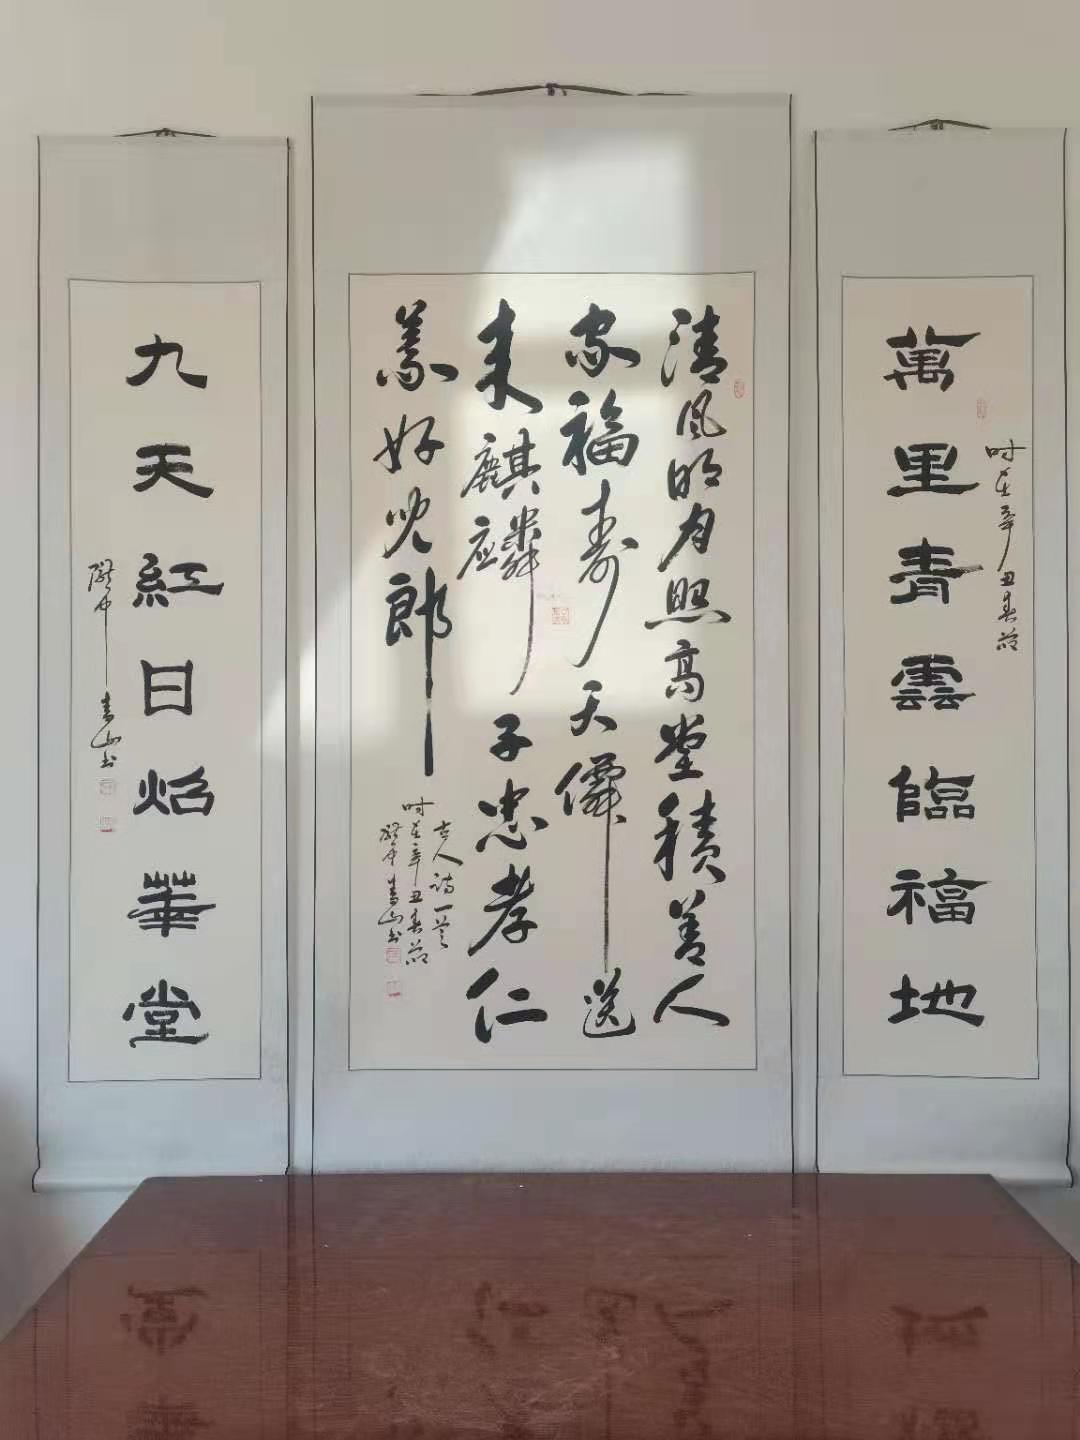 萬里青雲臨福地
时在辛丑春節
清风明月照高堂積善人
家福寿天僊送
来麒麟應子忠孝仁
義好児郎
古人詩一首
时在辛丑春節
隴中青山书
九天紅日焰華堂
隴中青山书